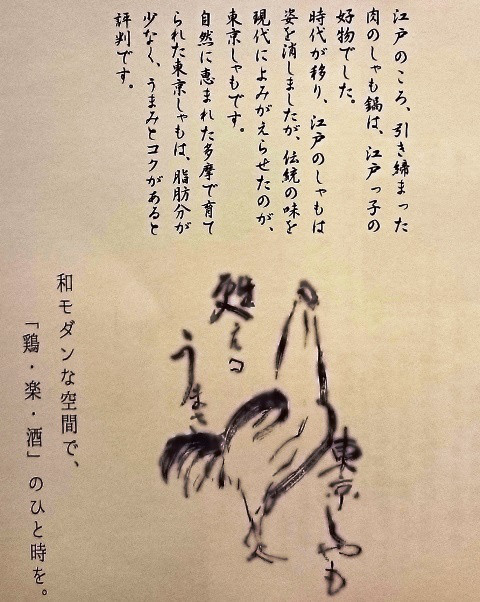 江戸のころ、引き締まった
肉のしゃも鍋は、江戸っ子の
好物でした。
時代が移り、江戸のしゃもは
姿を消しましたが、伝統の味を
現代によみがえらせたのが、
東京しゃもです。
自然に恵まれた多摩で育て
られた東京しゃもは、脂肪分が
少なく、うまみとコクがあると
評判です。
東京しゃも
甦える
うまさ
和モダンな空間で、
「鶏・楽・酒」のひと時を。